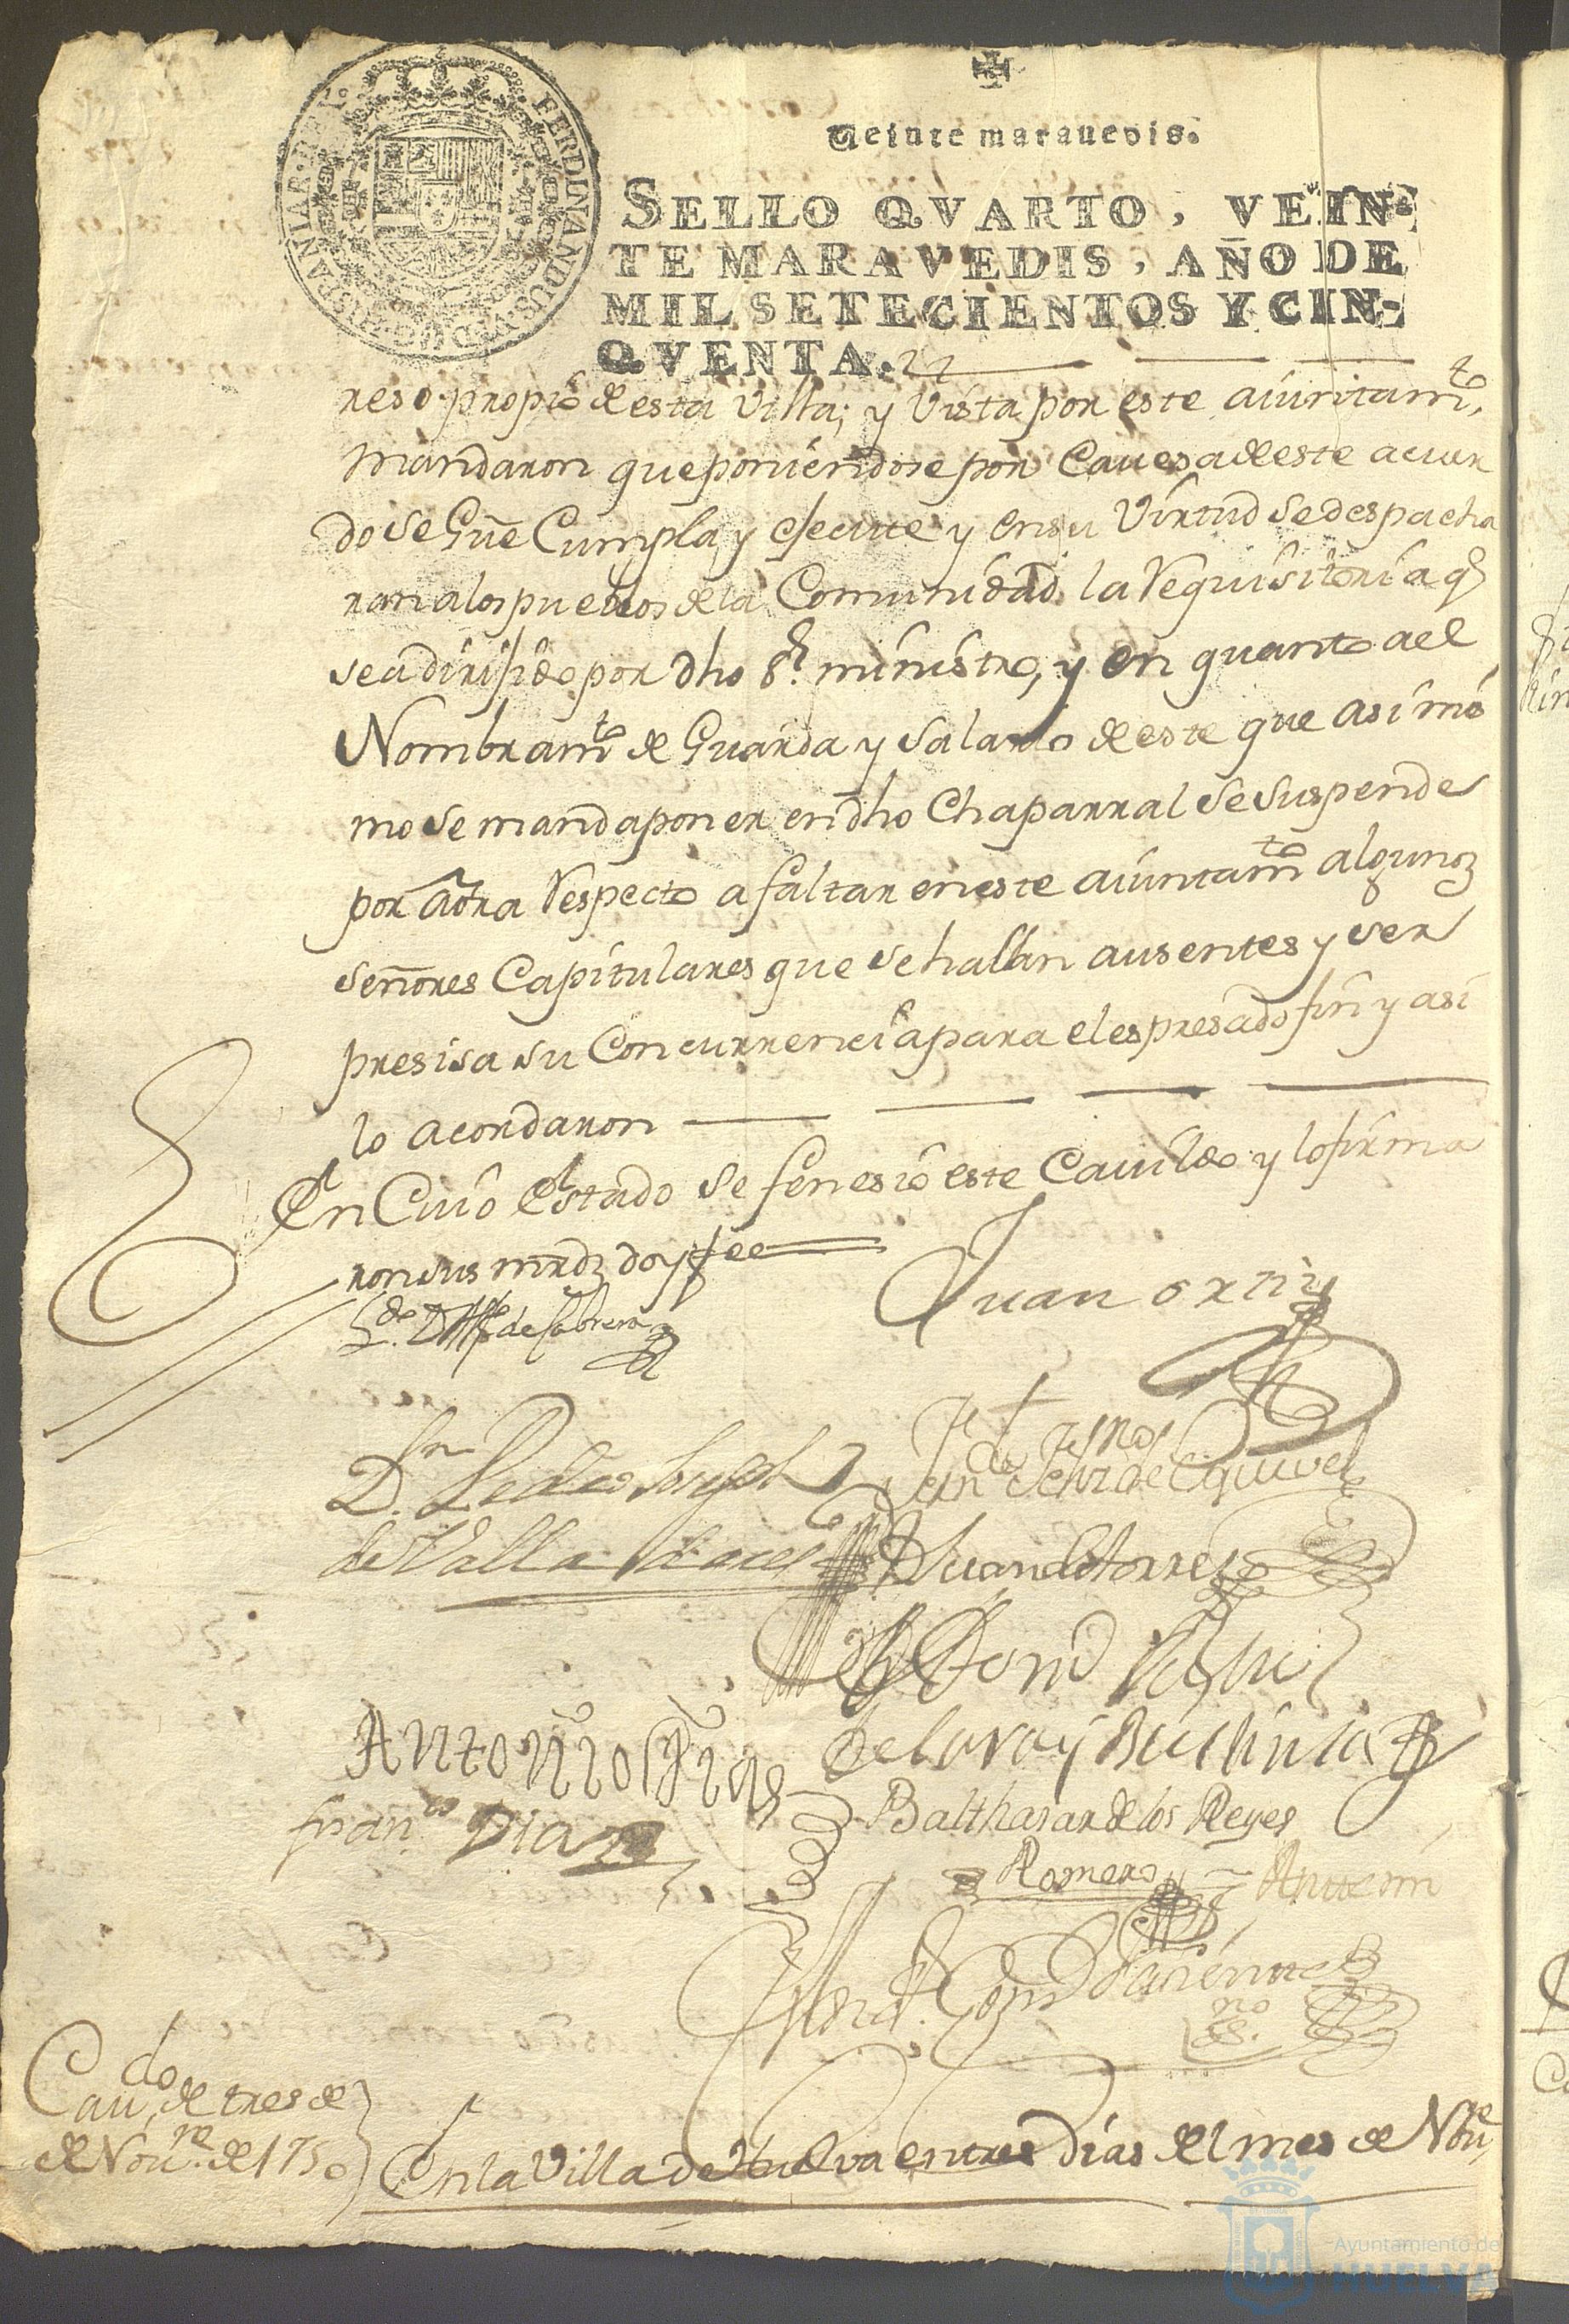 HISPANIAR. REX.
FERDINANDUS. VI. D. G.
Veinte maravedis.
SELLO QVARTO, VEIN-
TE MARAVEDIS, AÑO DE
MIL SETECIENTOS Y CIN-
QVENTA.
reso propio de esta Villa; y Vista por este aiuntam.to,
mandaron que poniendose por Cavesa de este acuer
do se Gũe Cumpla, y efecute y en su Virtud se despacha
ran a los pueblos de la Comunidad la Requisitoria q.e
sea dirifido por dho S.r ministro, y en quanto a el
Nombram.to de Guarda y Salario de este que asi mis
mo se manda poner en dho Chaparral se suspende
por aora Respecto a faltar en este aiuntam.to algunos
señores Capitulares que se hallan ausentes y ser
presisa su Concurrencia para el espresado fin y asi
lo acordaron
En Cuio Estado se fenesio este Cavildo y lo firma
ron sus mrdz doy fee
L.do D. Alf.o de Cabrera
Juan ortiz
D.n Pedro Joseph
de Valladares
Juan de torres
de Lara y Buitrin
Antonio
fran.co Diaz
Balthasar de los Reyes
Romero
Ante mi
es.no
Cav.do de tres de
de Nov.re de 1750
En la Villa de Huelva en tres Dias del mes de Nov.re
Ayuntamiento de
HUELVA